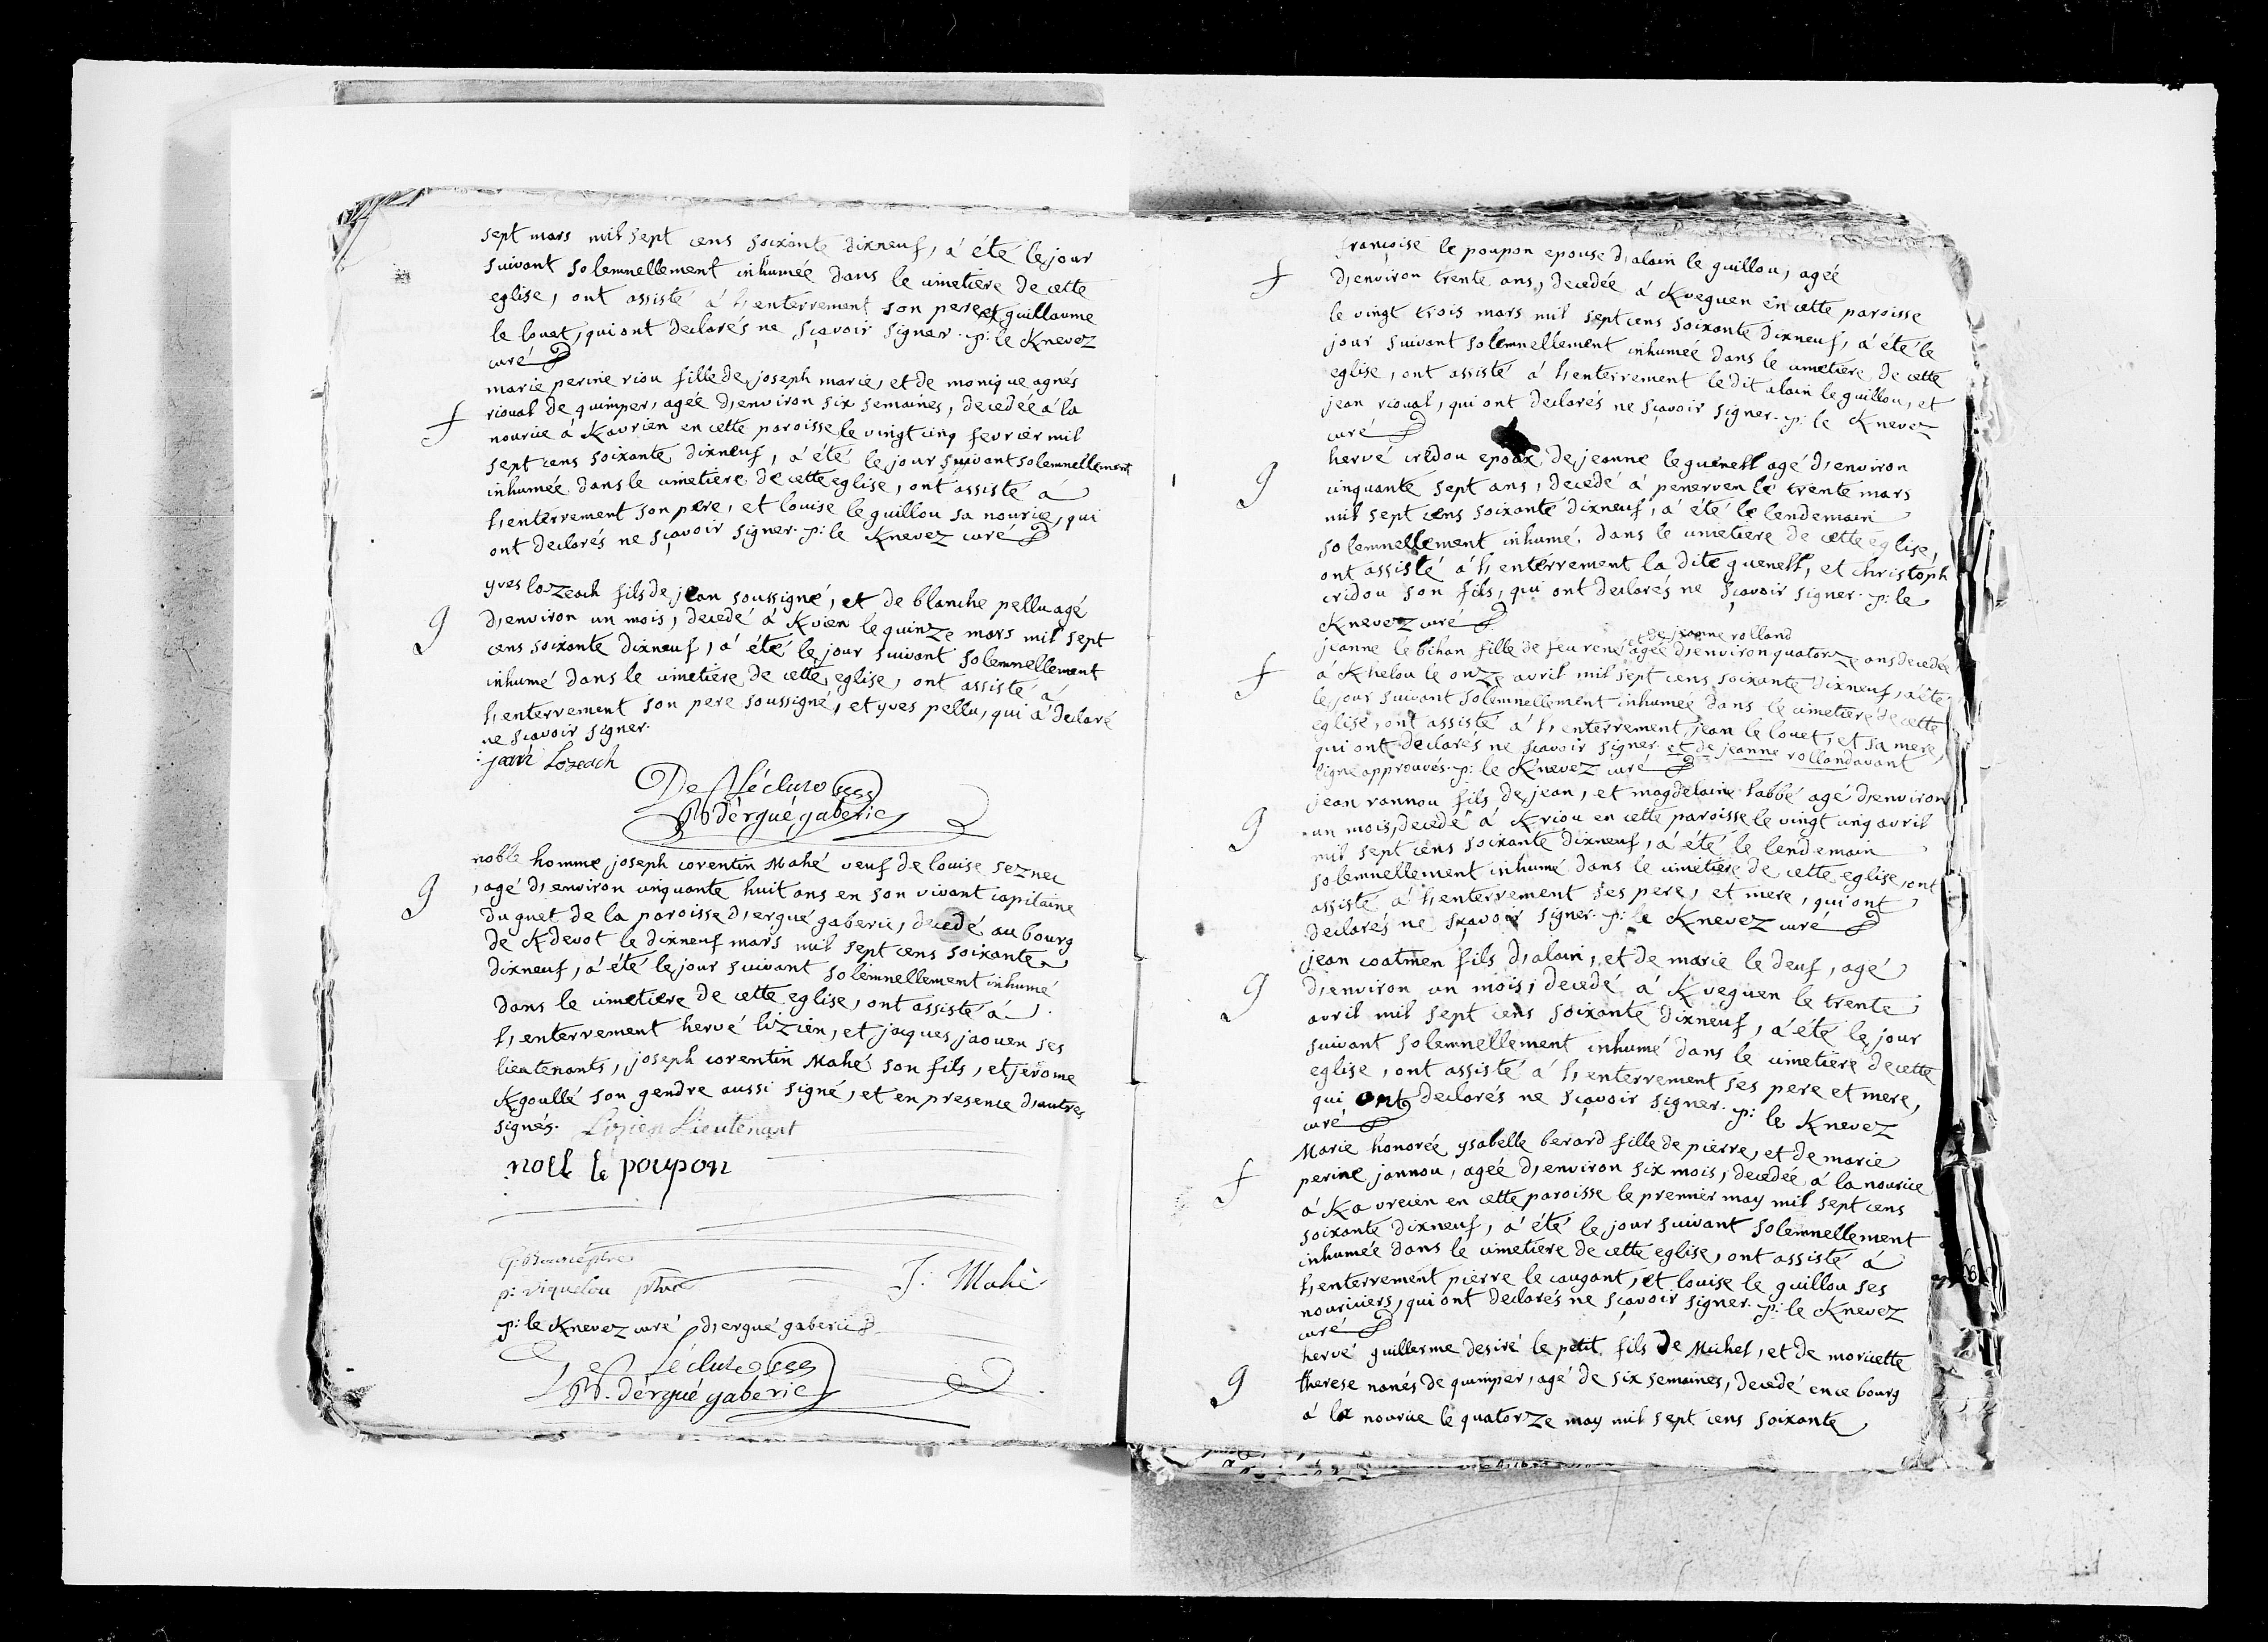 sept mars mil sept cens soixante dixneuf, a été le jour
suivant solemnellement inhumée dans le cimetiere de cette
eglise, ont assisté a l'enterrement son pere, et guillaume
le louet, qui ont declarés ne sçavoir signer. p: le Knevez
curé
marie perine riou fille de joseph marie, et de monique agnés
f
rioual de quimper, agée d'environ six semaines, decedée a la
nourice a Kaurien en cette paroisse le vingt cinq fevrier mil
sept cens soixante dixneuf, a été le jour suivant solemnellement
inhumée dans le cimetiere de cette eglise, ont assisté a
l'enterrement son pere, et louise le guillou sa nourice, qui
ont declarés ne sçavoir signer. p: le Knevez curé
yves lozeach fils de jean soussigné, et de blanche pellu agé
g
d'environ un mois, decedé a Kvien le quinze mars mil sept
cens soixante dixneuf, a été le jour suivant solemnellement
inhumé dans le cimetiere de cette eglise, ont assisté a
l'enterrement son pere soussigné, et yves pellu, qui a declaré
ne sçavoir signer.
jean Lozeach
De Lécluse
R. d'ergué gaberic
noble homme joseph corentin Mahé veuf de louise seznec
g
, agé d'environ cinquante huit ans en son vivant capitaine
du guet de la paroisse d'ergué gaberic, decedé au bourg
de Kdevot le dixneuf mars mil sept cens soixante
dixneuf, a été le jour suivant solemnellement inhumé
dans le cimetiere de cette eglise, ont assisté a
l'enterrement hervé lizien, et jacques jaouen ses
lieutenants, joseph corentin Mahé son fils, et jerome
Kgoullé son gendre aussi signé, et en presence d'autres
signés. Lizien Lieutenant
noel le poupon
p: viquelou ptre
J: Mahé
p: le Knevez curé d'ergué gaberic
De Lécluse
R. d'ergué gaberic
françoise le poupon epouse d'alain le guillou, agée
f
d'environ trente ans, decedée a Kveguen en cette paroisse
le vingt trois mars mil sept cens soixante dixneuf, a été le
jour suivant solemnellement inhumée dans le cimetiere de cette
eglise, ont assisté a l'enterrement le dit alain le guillou, et
jean rioual, qui ont declarés ne sçavoir signer. p: le Knevez
curé
hervé credou epoux de jeanne le guenell agé d'environ
g
cinquante sept ans, decedé a penerven le trente mars
mil sept cens soixante dixneuf, a été le lendemain
solemnellement inhumé dans le cimetiere de cette eglise,
ont assisté a l'enterrement la dite guenell, et christoph
cridou son fils, qui ont declarés ne sçavoir signer. p: le
Knevez curé
et de jeanne rolland
jeanne le bihan fille de feu rené agée d'environ quatorze ans decedée
f
a Khelou le onze avril mil sept cens soixante dixneuf, a été
le jour suivant solemnellement inhumée dans le cimetiere de cette
eglise, ont assisté a l'enterrement, jean le louet, et sa mere,
qui ont declarés ne sçavoir signer. et de jeanne rolland avant
ligne approuvés. p: le Knevez curé
jean rannou fils de jean, et magdelaine labbé agé d'environ
g
un mois, decedé a Kriou en cette paroisse le vingt cinq avril
mil sept cens soixante dixneuf, a été le lendemain
solemnellement inhumé dans le cimetiere de cette eglise, ont
assisté a l'enterrement ses pere, et mere, qui ont
declarés ne sçavoir signer. p: le Knevez curé
jean coatmen fils d'alain, et de marie le deuf, agé
g
d'environ un mois, decedé a Kveguen le trente
avril mil sept cens soixante dixneuf, a été le jour
suivant solemnellement inhumé dans le cimetiere de cette
eglise, ont assisté a l'enterrement ses pere et mere,
qui ont declarés ne sçavoir signer. p: le Knevez
curé
Marie honorée ysabelle berard fille de pierre, et de marie
f
perine jannou, agée d'environ six mois, decedée a la nourice
a Kavrecien en cette paroisse le premier may mil sept cens
soixante dixneuf, a été le jour suivant solemnellement
inhumée dans le cimetiere de cette eglise, ont assisté a
l'enterrement pierre le caugant, et louise le guillou ses
nouriciers, qui ont declarés ne sçavoir signer. p: le Knevez
curé
hervé guillerme desiré le petit fils de Michel, et de moricette
g
therese nanés de quimper, agé de six semaines, decedé en ce bourg
a la nourice le quatorze may mil sept cens soixante